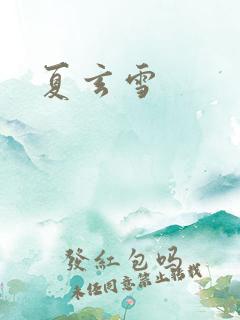 夏玄雪
發紅包吗
未经同意禁止转载